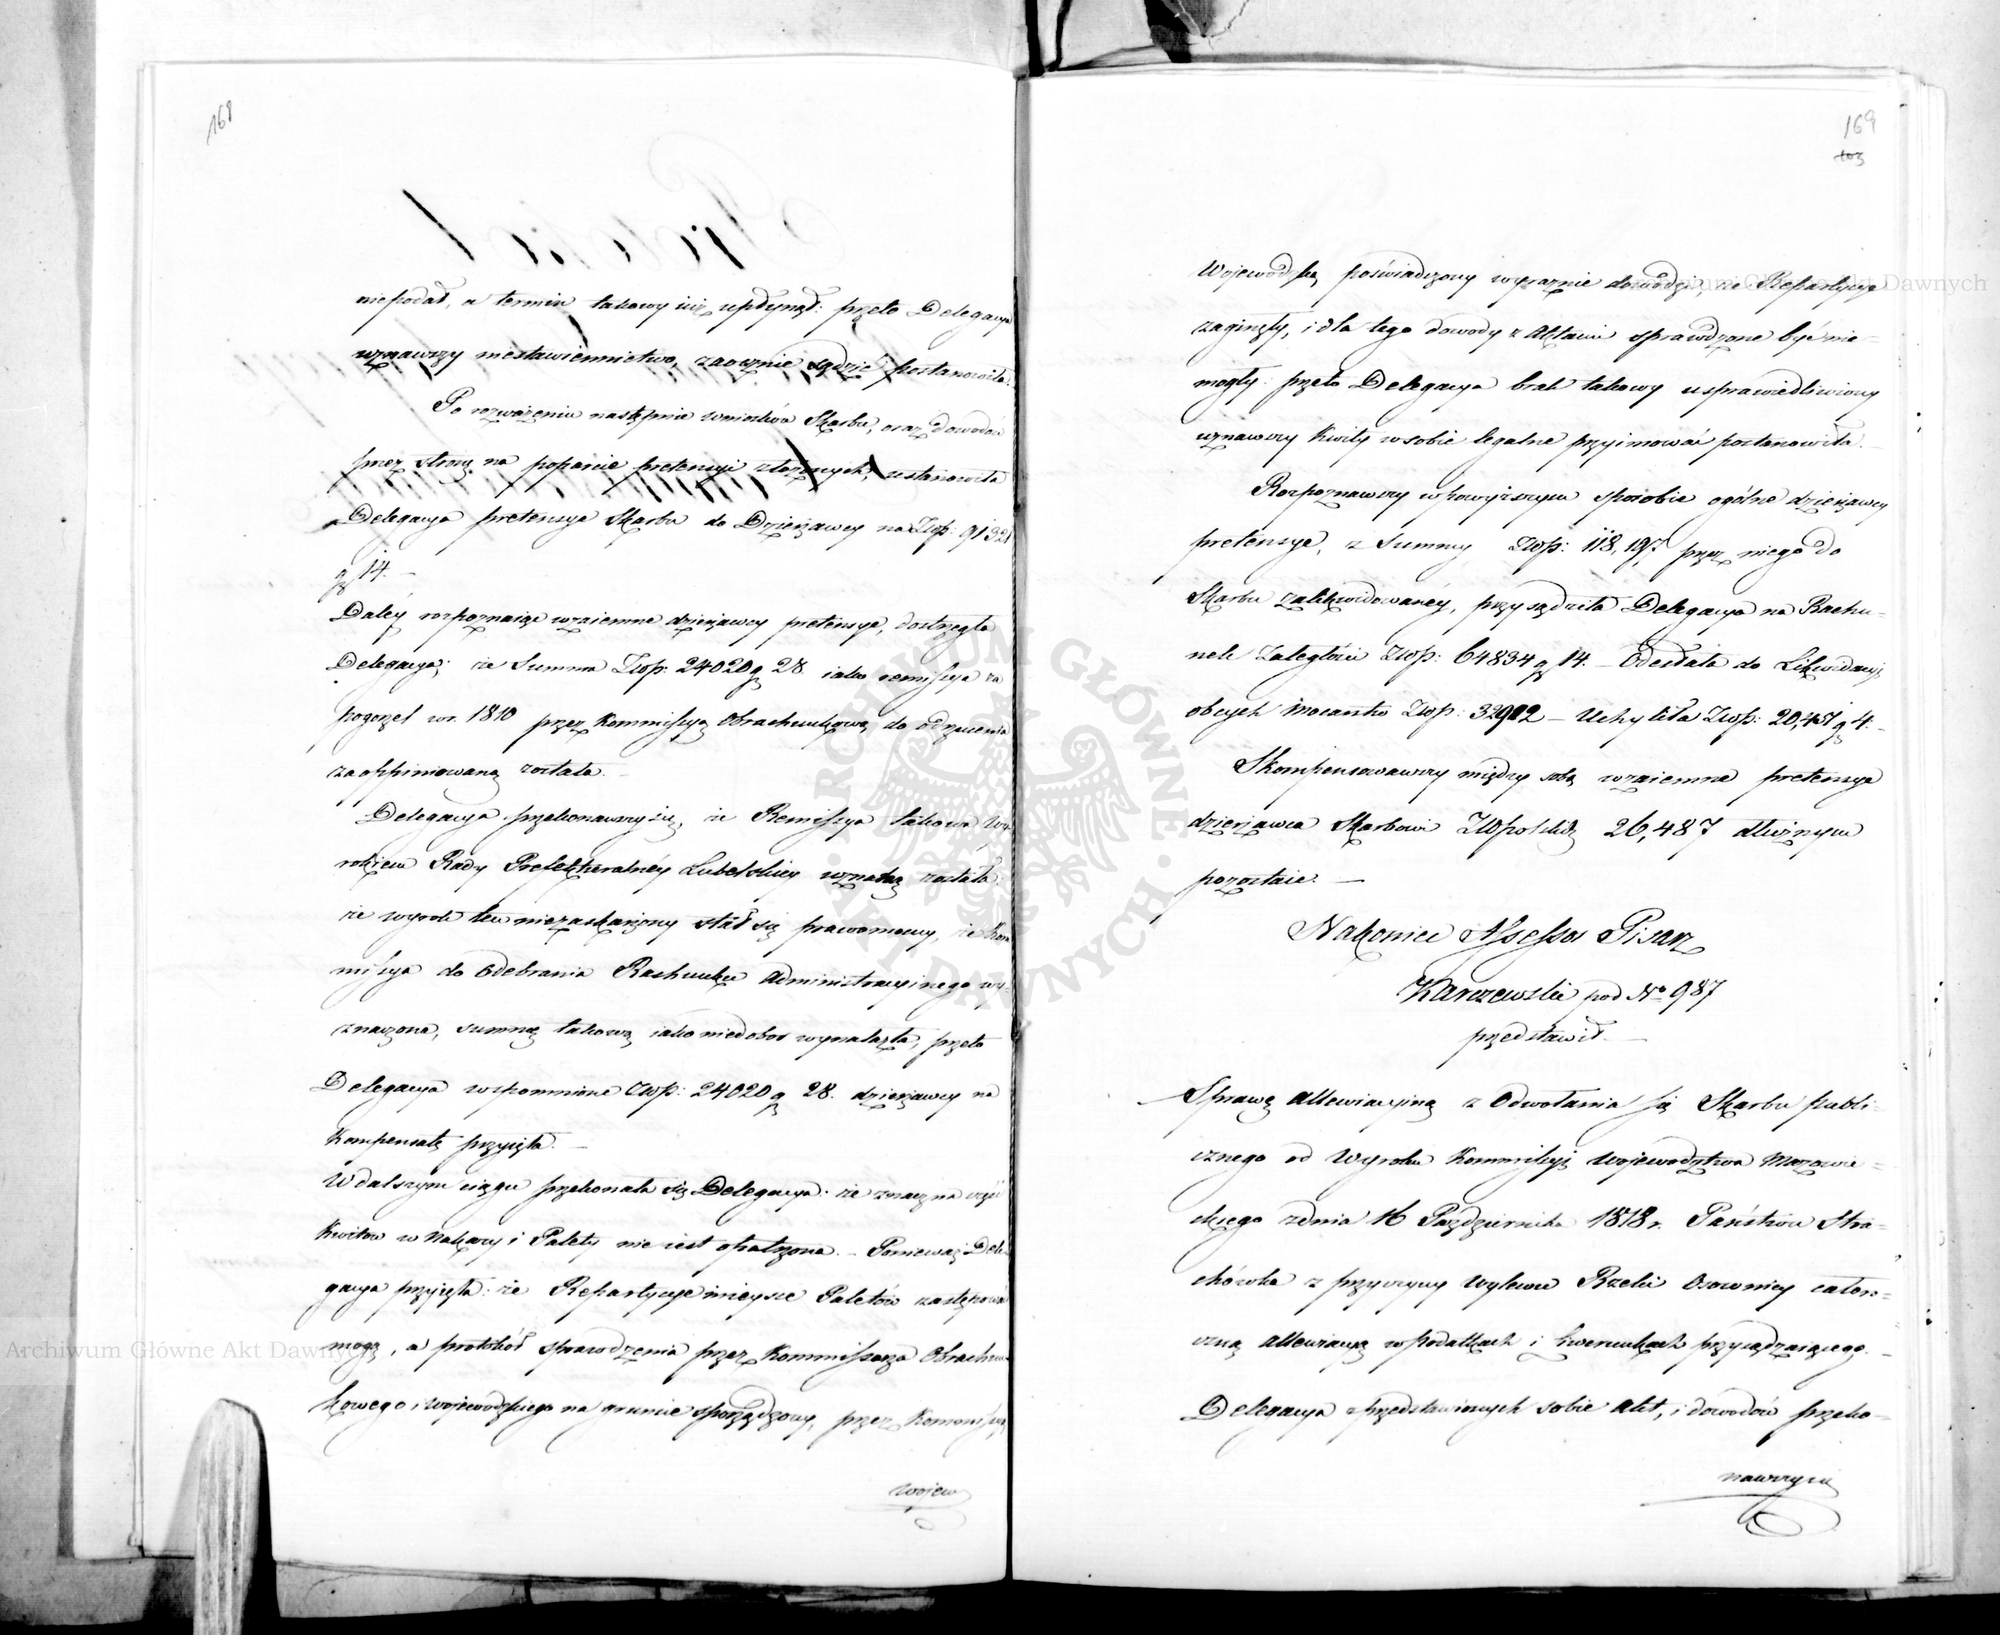 168
niepodał, a termin takowy iuż upłynął: przeto Delegacya
uznawszy niestawiennictwo, zaocznie sądzić postanowiła.
Po rozważeniu następnie wniosków Skarbu, oraz dowodów
przez stronę na poparcie pretensyi złożonych, ustanowiła
Delegacya pretensye Skarbu do Dzierżawcy na Złop: 91321
gr 14. —
Daléy rozpoznaiąc wzaiemne dzierżawcy pretensye, dostrzegła
Delegacya; że Summa Złop: 24020 gr 28 iako remissya za
pogorzel w r. 1810 przez Kommissyą Obrachunkową do odrzucenia
zaoppiniowaną została. —
Delegacya przekonawszy się, że Remissya takowa Wy-
rokiem Rady Prefekturalnéy Lubelskiey uznaną została.
że wyrok ten niezaskarżony stał się prawomocny, że Kom
missya do Odebrania Rachunku Administracyinego wy-
znaczona, summę takową iako niedobor wynalazła, przeto
Delegacya wspomnione Złop: 24020 gr 28. dzierżawcy na
Kompensatę przyięła. —
W dalszym ciągu przekonała się Delegacya: że znaczna część
Kwitów w Nakazy i Palety nie iest opatrzona. — Ponieważ Dele-
gacya przyięła: że Repartycye mieysce Paletów zastępować
mogą, a protokół sprawdzenia przez Kommissarza Obrachun-
kowego i woiewódzkiego na gruncie sporządzony, przez Kommissyą
wojew
169
103
Wojewodzką poświadczony wyraźnie dowodzi, że Repartycye
zaginęły, i dla tego dowody z Aktami sprawdzone być nie-
mogły: przeto Delegacya brak takowy usprawiedliwiony
uznawszy Kwity w sobie legalne przyimować postanowiła. —
Rozpoznawszy w powyższym sposobie ogólne dzierżawcy
pretensye, z Summy Złop: 118,197 przez niego do
Skarbu zalikwidowanéy, przysądziła Delegacya na Rachu-
nek Zaległości Złop: 64834 gr 14. — Odesłała do Likwidacyi
obcych mocarstw Złop: 32902 — Uchyliła Złop: 20,451 gr 4. —
Skompensowawszy między sobą wzaiemne pretensye
dzierżawca Skarbowi Złopolskich 26,487 dłużnym
pozostaie. —
Nakoniec Assessor Pisarz
Karczewski pod No 987
przedstawił. —
Sprawę Allewiacyiną z Odwołania się Skarbu publi-
cznego od Wyroku Kommissyi Województwa Mazowie-
ckiego z dnia 16 Października 1818 r. Państwu Stra-
chówka z przyczyny wylewu Rzeki Osownicy całoro-
czną allewiacyą w podatkach i liwerunkach przysądzaiącego. —
Delegacya z przedstawionych sobie Akt, i dowodów przeko-
nawszy się